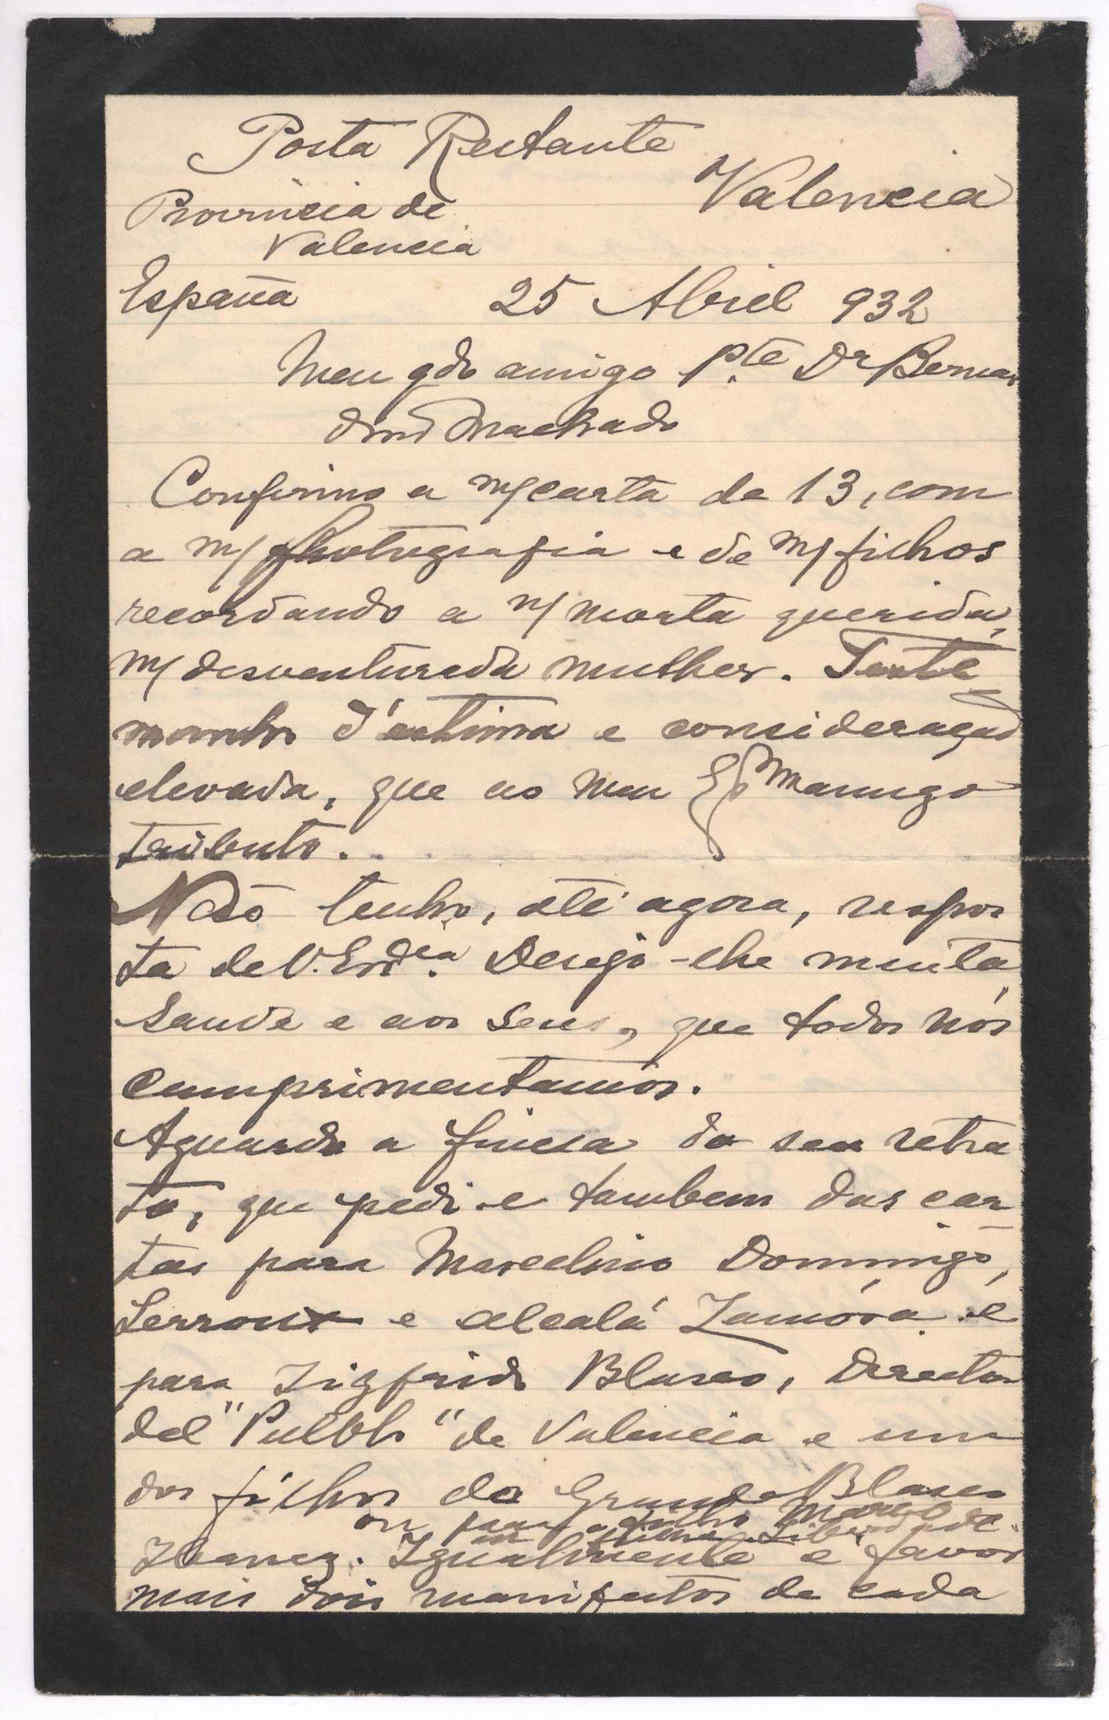 Posta Restante
Valencia
Provincia de
Valencia
España
25 Abril 932
Meu qdo amigo P.te Dr Bernar
dino Machado
Confirmo a m/ carta de 13, com
a m/ photografia e de m/ filhos
recordando a n/ morta querida,
m/ desventurada mulher. Teste
monho d'estima e consideração
elevada, que ao meu Exmo amigo
tributo.
Não tenho, até agora, respos
ta de V. Exa. Desejo-lhe muita
saude e aos seus, que todos nós
cumprimentamos.
Aguardo a fineza do seu retra
to, que pedi e tambem das car
tas para Marcelino Domingo,
Lerroux e Alcalá Zamóra e
para Zigfrido Blasco, Director
del "Pueblo" de Valencia e um
dos filhos do Grande Blasco
ou para o outro Mario
Ibanez. Igualmente e favor
mais dois manifestos de cada